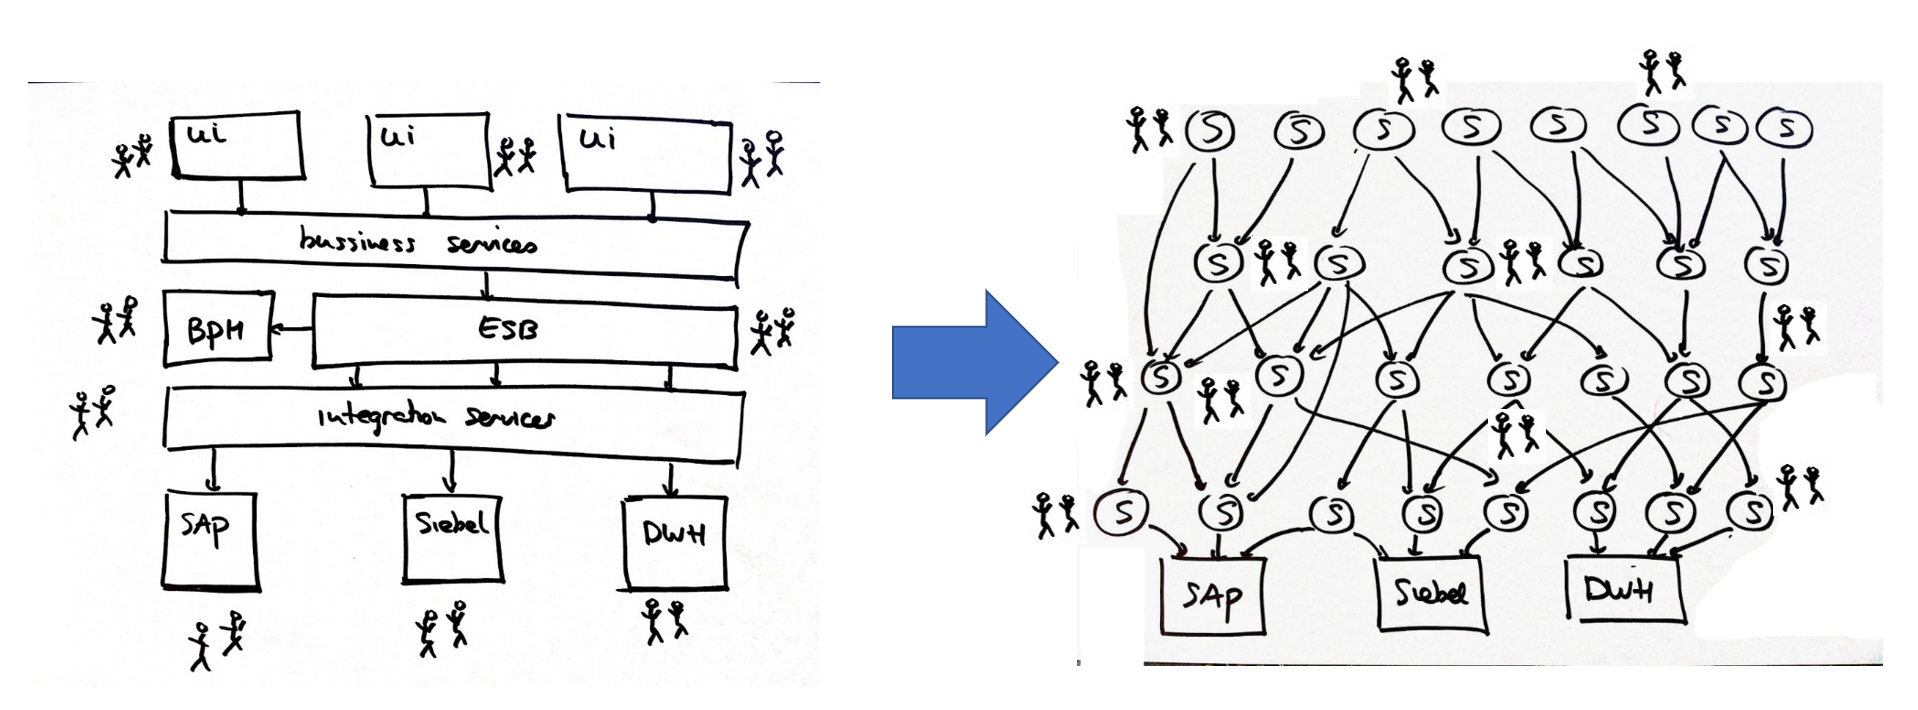 ui ui ui
bussiness services
BPM ESB
integration services
SAP Siebel DWH
S S S S S S S S
S S S S S S
S S S S S S S
S S S S S S S S
SAP Siebel DWH